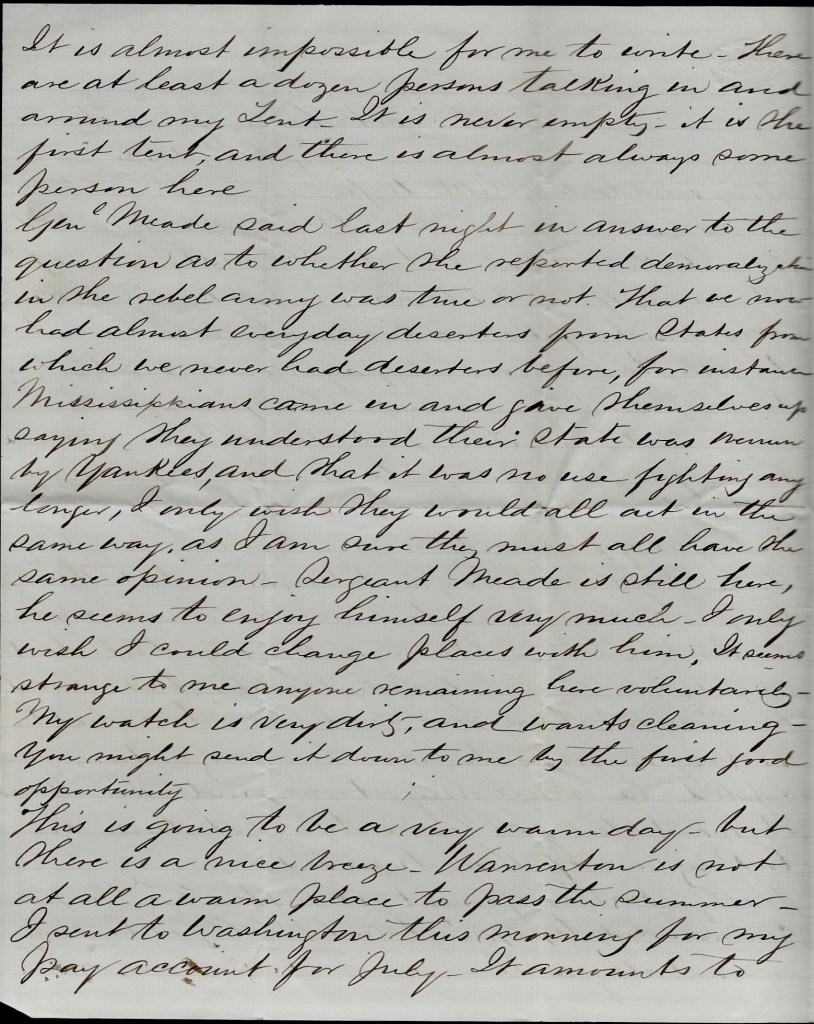 It is almost impossible for me to write - There
are at least a dozen persons talking in and
around my Tent - It is never empty - it is the
first tent, and there is almost always some
person here
Genl Meade said last night in answer to the
question as to whether the reported demoralization
in the rebel army was true or not. That we now
had almost everyday deserters from States from
which we never had deserters before, for instance
Mississippians came in and gave themselves up
saying they understood their State was overrun
by Yankees, and that it was no use fighting any
longer, I only wish they would all act in the
same way, as I am sure they must all have the
same opinion - Sergeant Meade is still here,
he seems to enjoy himself very much - I only
wish I could change places with him, It seems
strange to me anyone remaining here voluntarily -
My watch is very dirty, and wants cleaning -
You might send it down to me by the first good
opportunity
This is going to be a very warm day - but
there is a nice breeze - Warrenton is not
at all a warm place to pass the summer -
I sent to Washington this morning for my
pay account for July - It amounts to